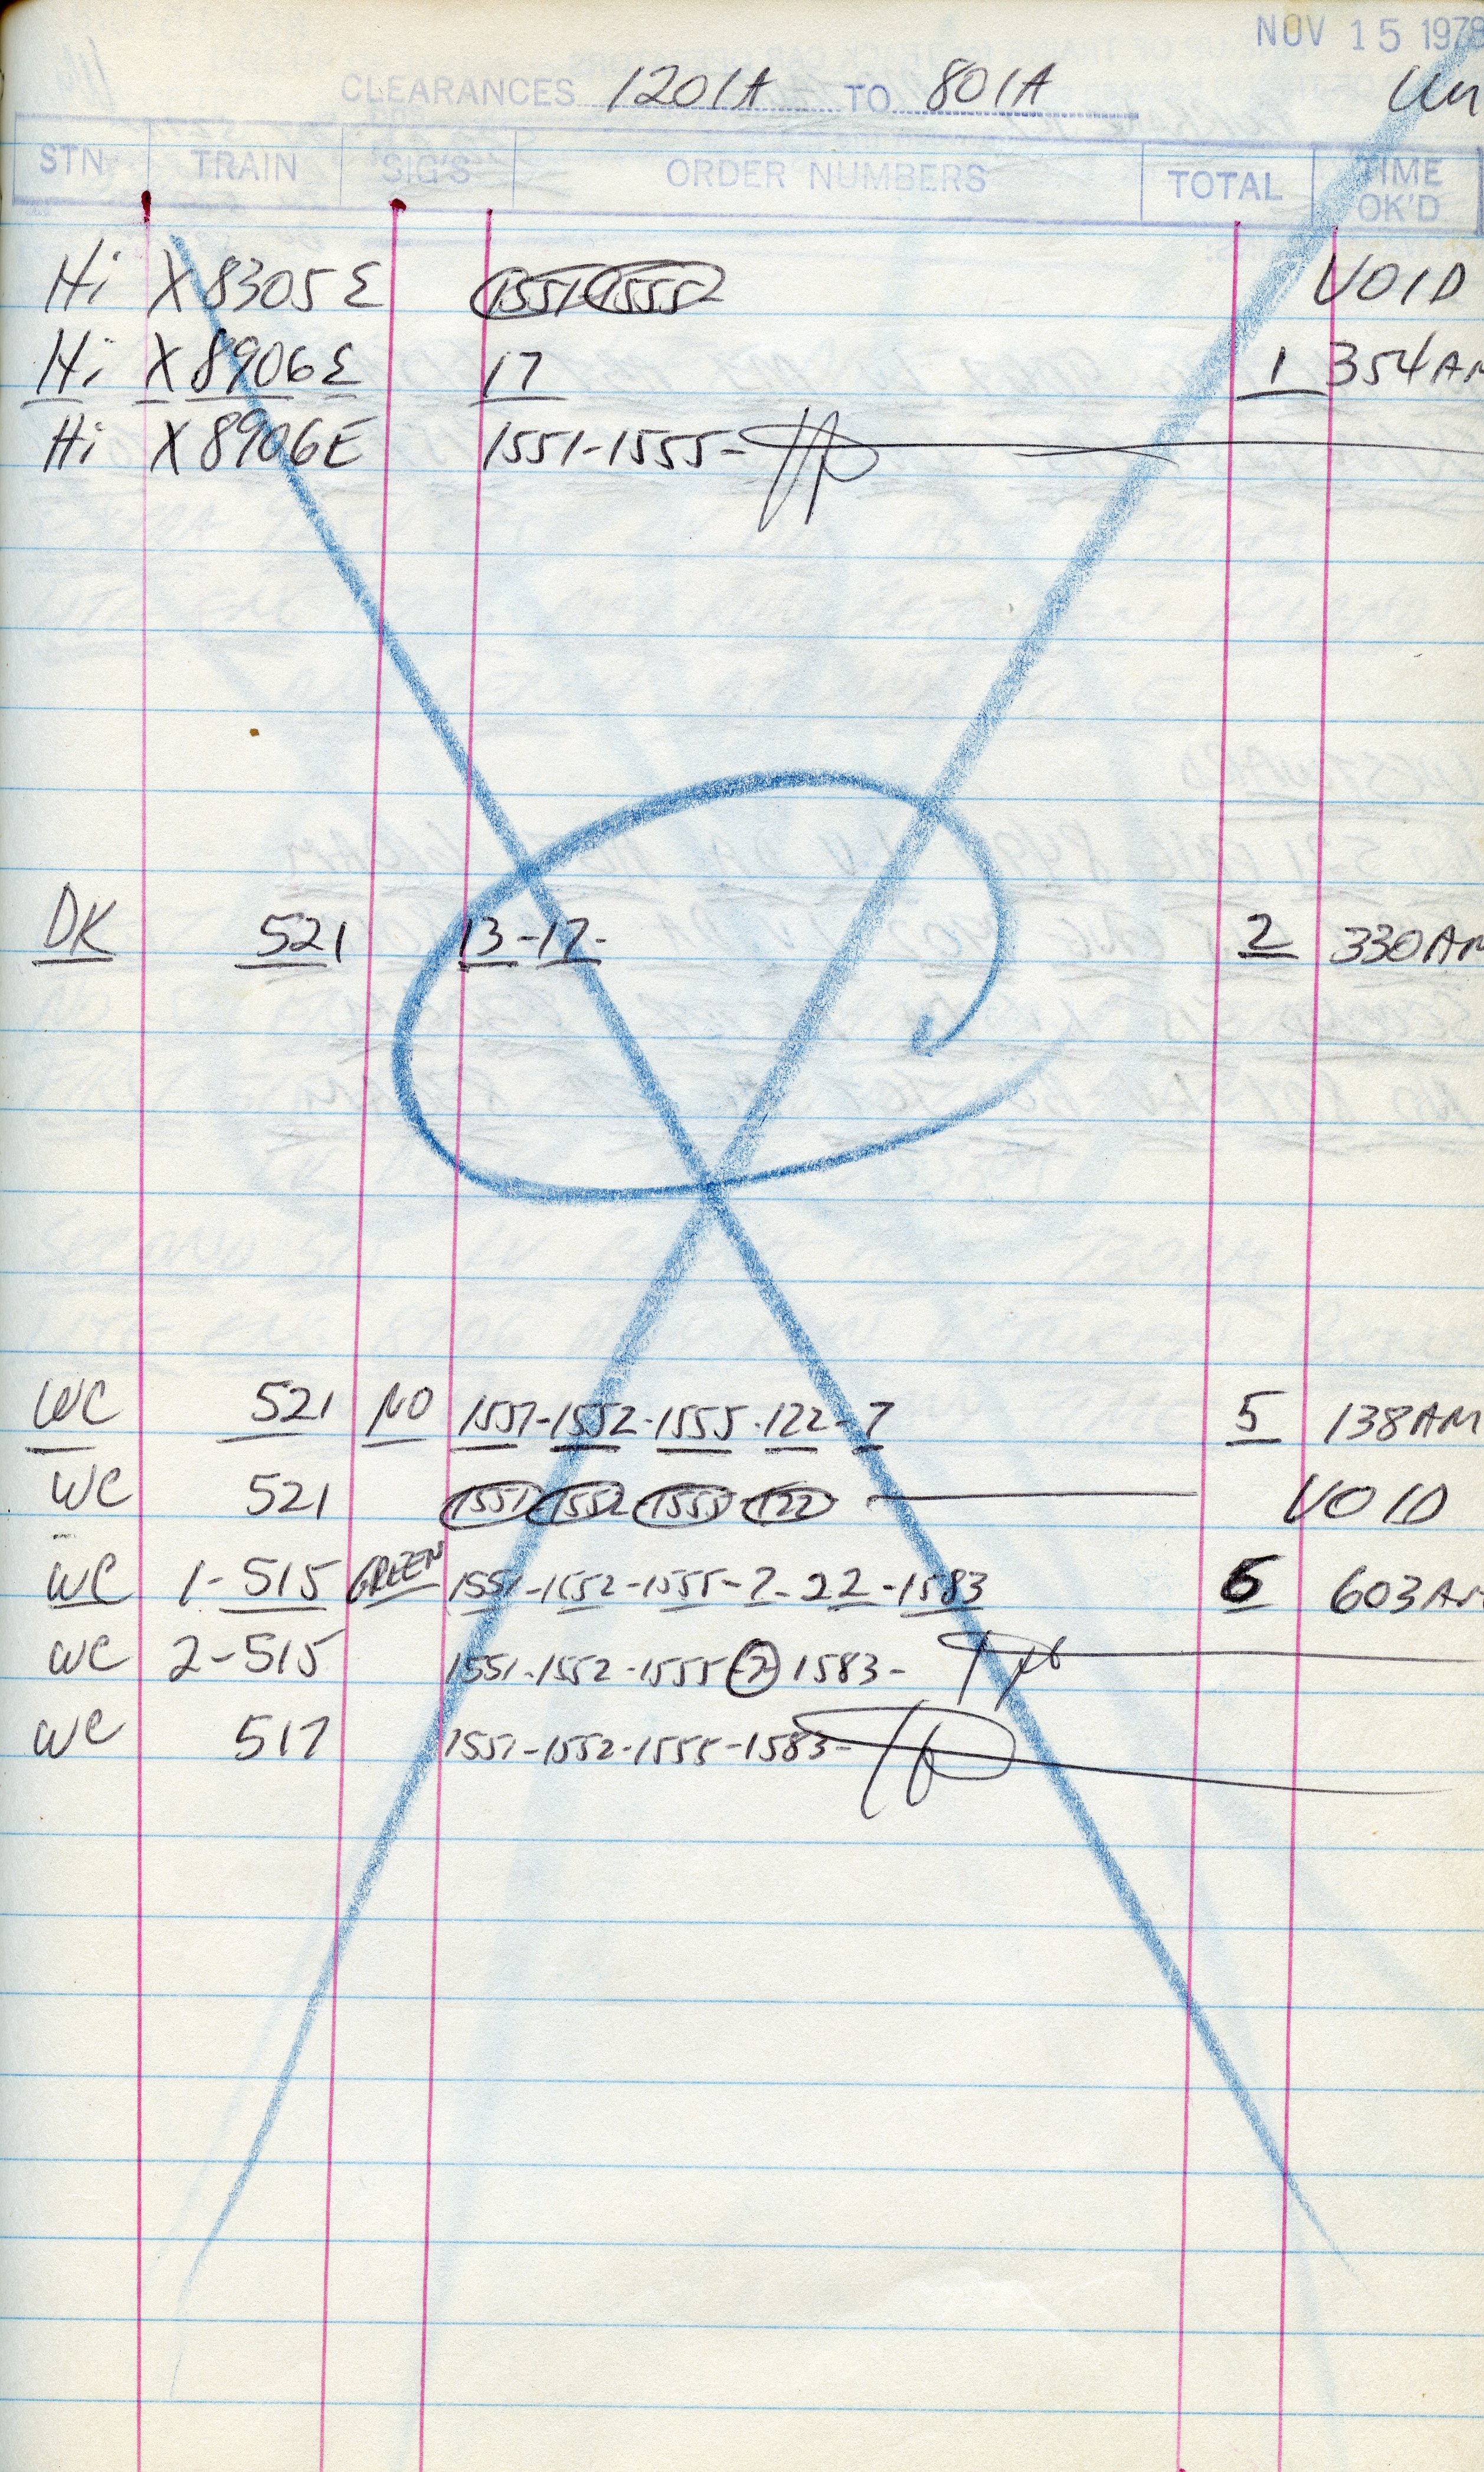 NOV 15 1978
CLEARANCES 1201A TO 801A
STN TRAIN SIG'S ORDER NUMBERS TOTAL TIME OK'D
Hi X 8305 E 1551-1555 VOID
Hi X 8906 E 17 1 354AM
Hi X 8906E 1551-1555-
DK 521 13-17- 2 330AM
WC 521 NO 1551-1552-1555-122-7 5 138AM
WC 521 1551-1552-1555-122 VOID
WC 1-515 GREEN 1551-1552-1555-7-22-1583 6 603AM
WC 2-515 1551-1552-1555-7-1583-
WC 517 1551-1552-1555-1583-